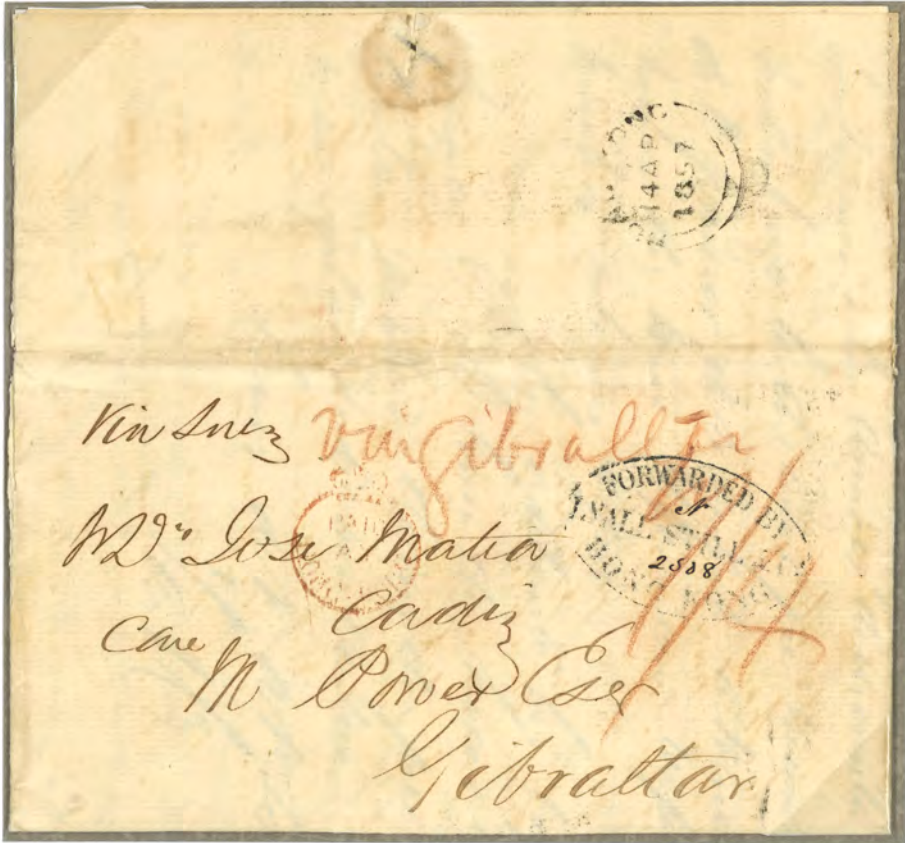 HONG KONG
14 AP
1857
Via Suez
via Gibraltar
FORWARDED BY
N
2508
HONG KONG
1/4
Dn Jose Matia
Cadiz
Care
M Power Esqr
Gibraltar